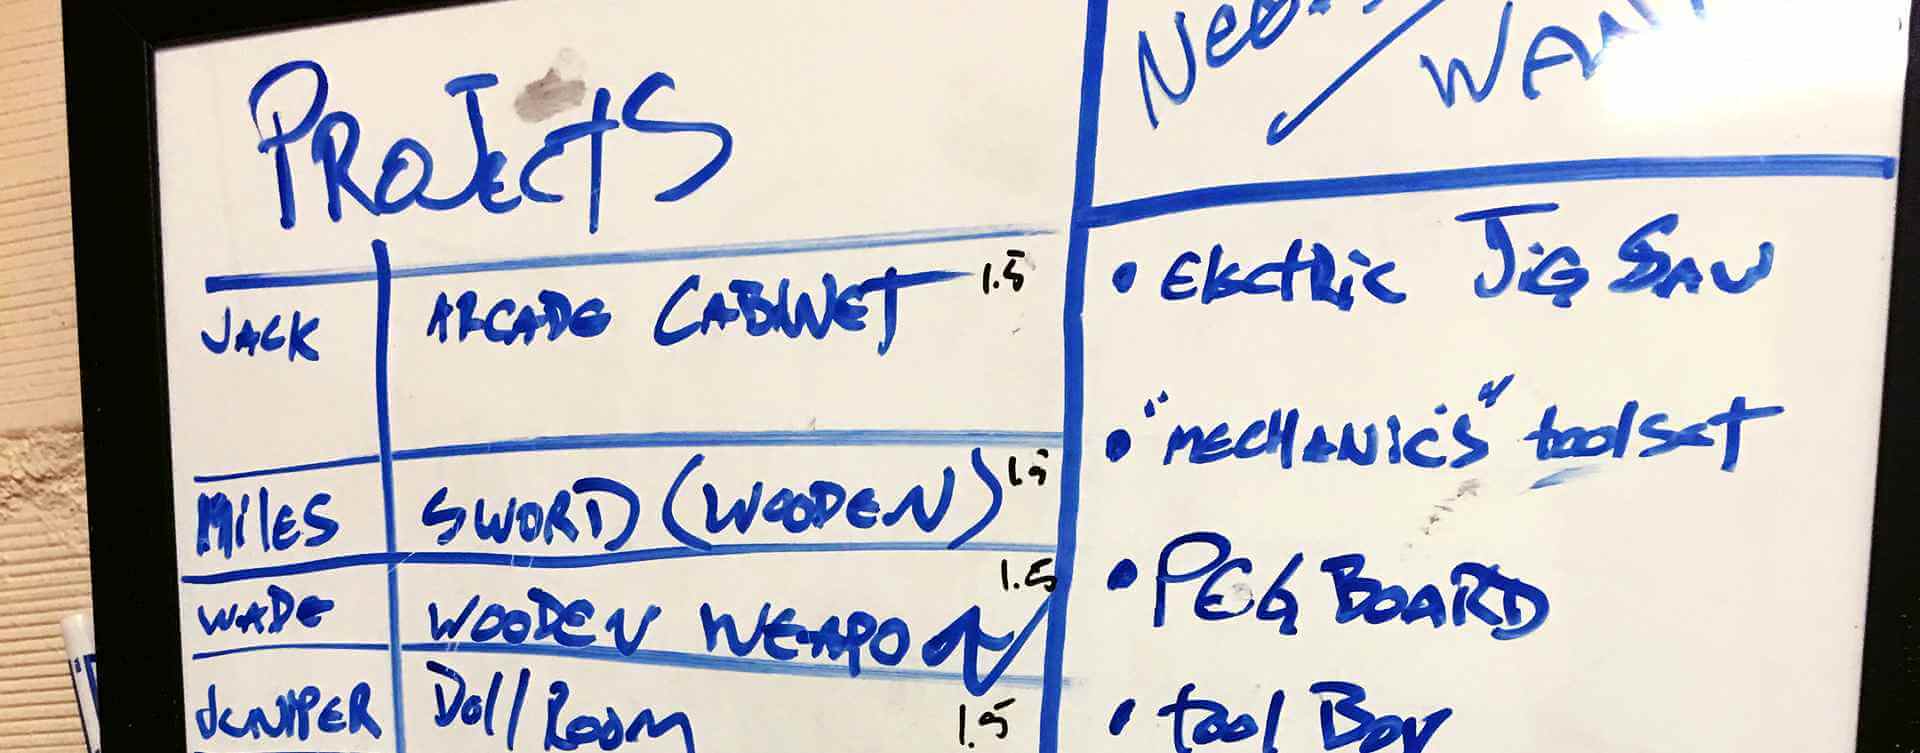 PROJECTS
JACK ARCADE CABINET 1.5
MILES SWORD (WOODEN) 1.5
WADE WOODEN WEAPON 1.5
JUNIPER Doll Room 1.5
• Electric JIG SAW
• "MECHANICS" toolset
• PEG BOARD
• tool Box